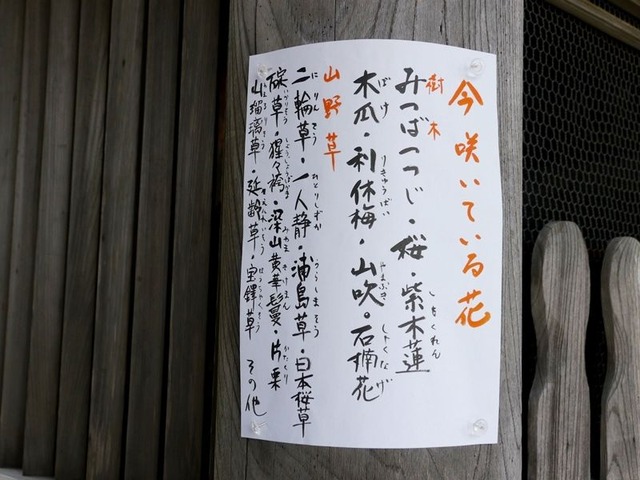 今咲いている花
樹木
みつばつつじ・桜・紫木蓮
木瓜・利休梅・山吹・石楠花
山野草
二輪草・一人静・浦島草・日本桜草
碇草・猩々袴・深山黄華鬘・片栗
山瑠璃草・延齢草・宝鐸草 その他
しもくれん
ぼけ
りきゅうばい
やまぶき
しゃくなげ
にりんそう
ひとりしずか
うらしまそう
いかりそう
しょうじょうばかま
かたくり